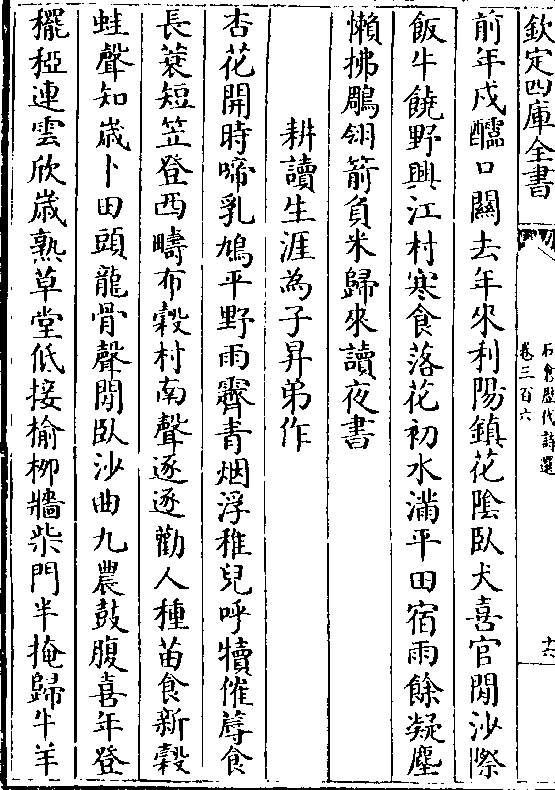 欽定四庫全書
石倉歴代詩選
卷三百六
十六
前年戍醹口關去年來利陽鎮花陰臥犬喜官閒沙際
飯牛饒野興江村寒食落花初水滿平田宿雨餘凝塵
懶拂雕翎箭負米歸來讀夜書
耕讀生涯為子昇弟作
杏花開時啼乳鳩平野雨霽青烟浮稚兒呼犢催蓐食
長蓑短笠登西疇布穀村南聲逐逐勸人種苗食新穀
蛙聲知歲卜田頭龍骨聲閒臥沙曲九農鼓腹喜年登
䆉稏連雲欣歲熟草堂低接榆柳牆柴門半掩歸牛羊